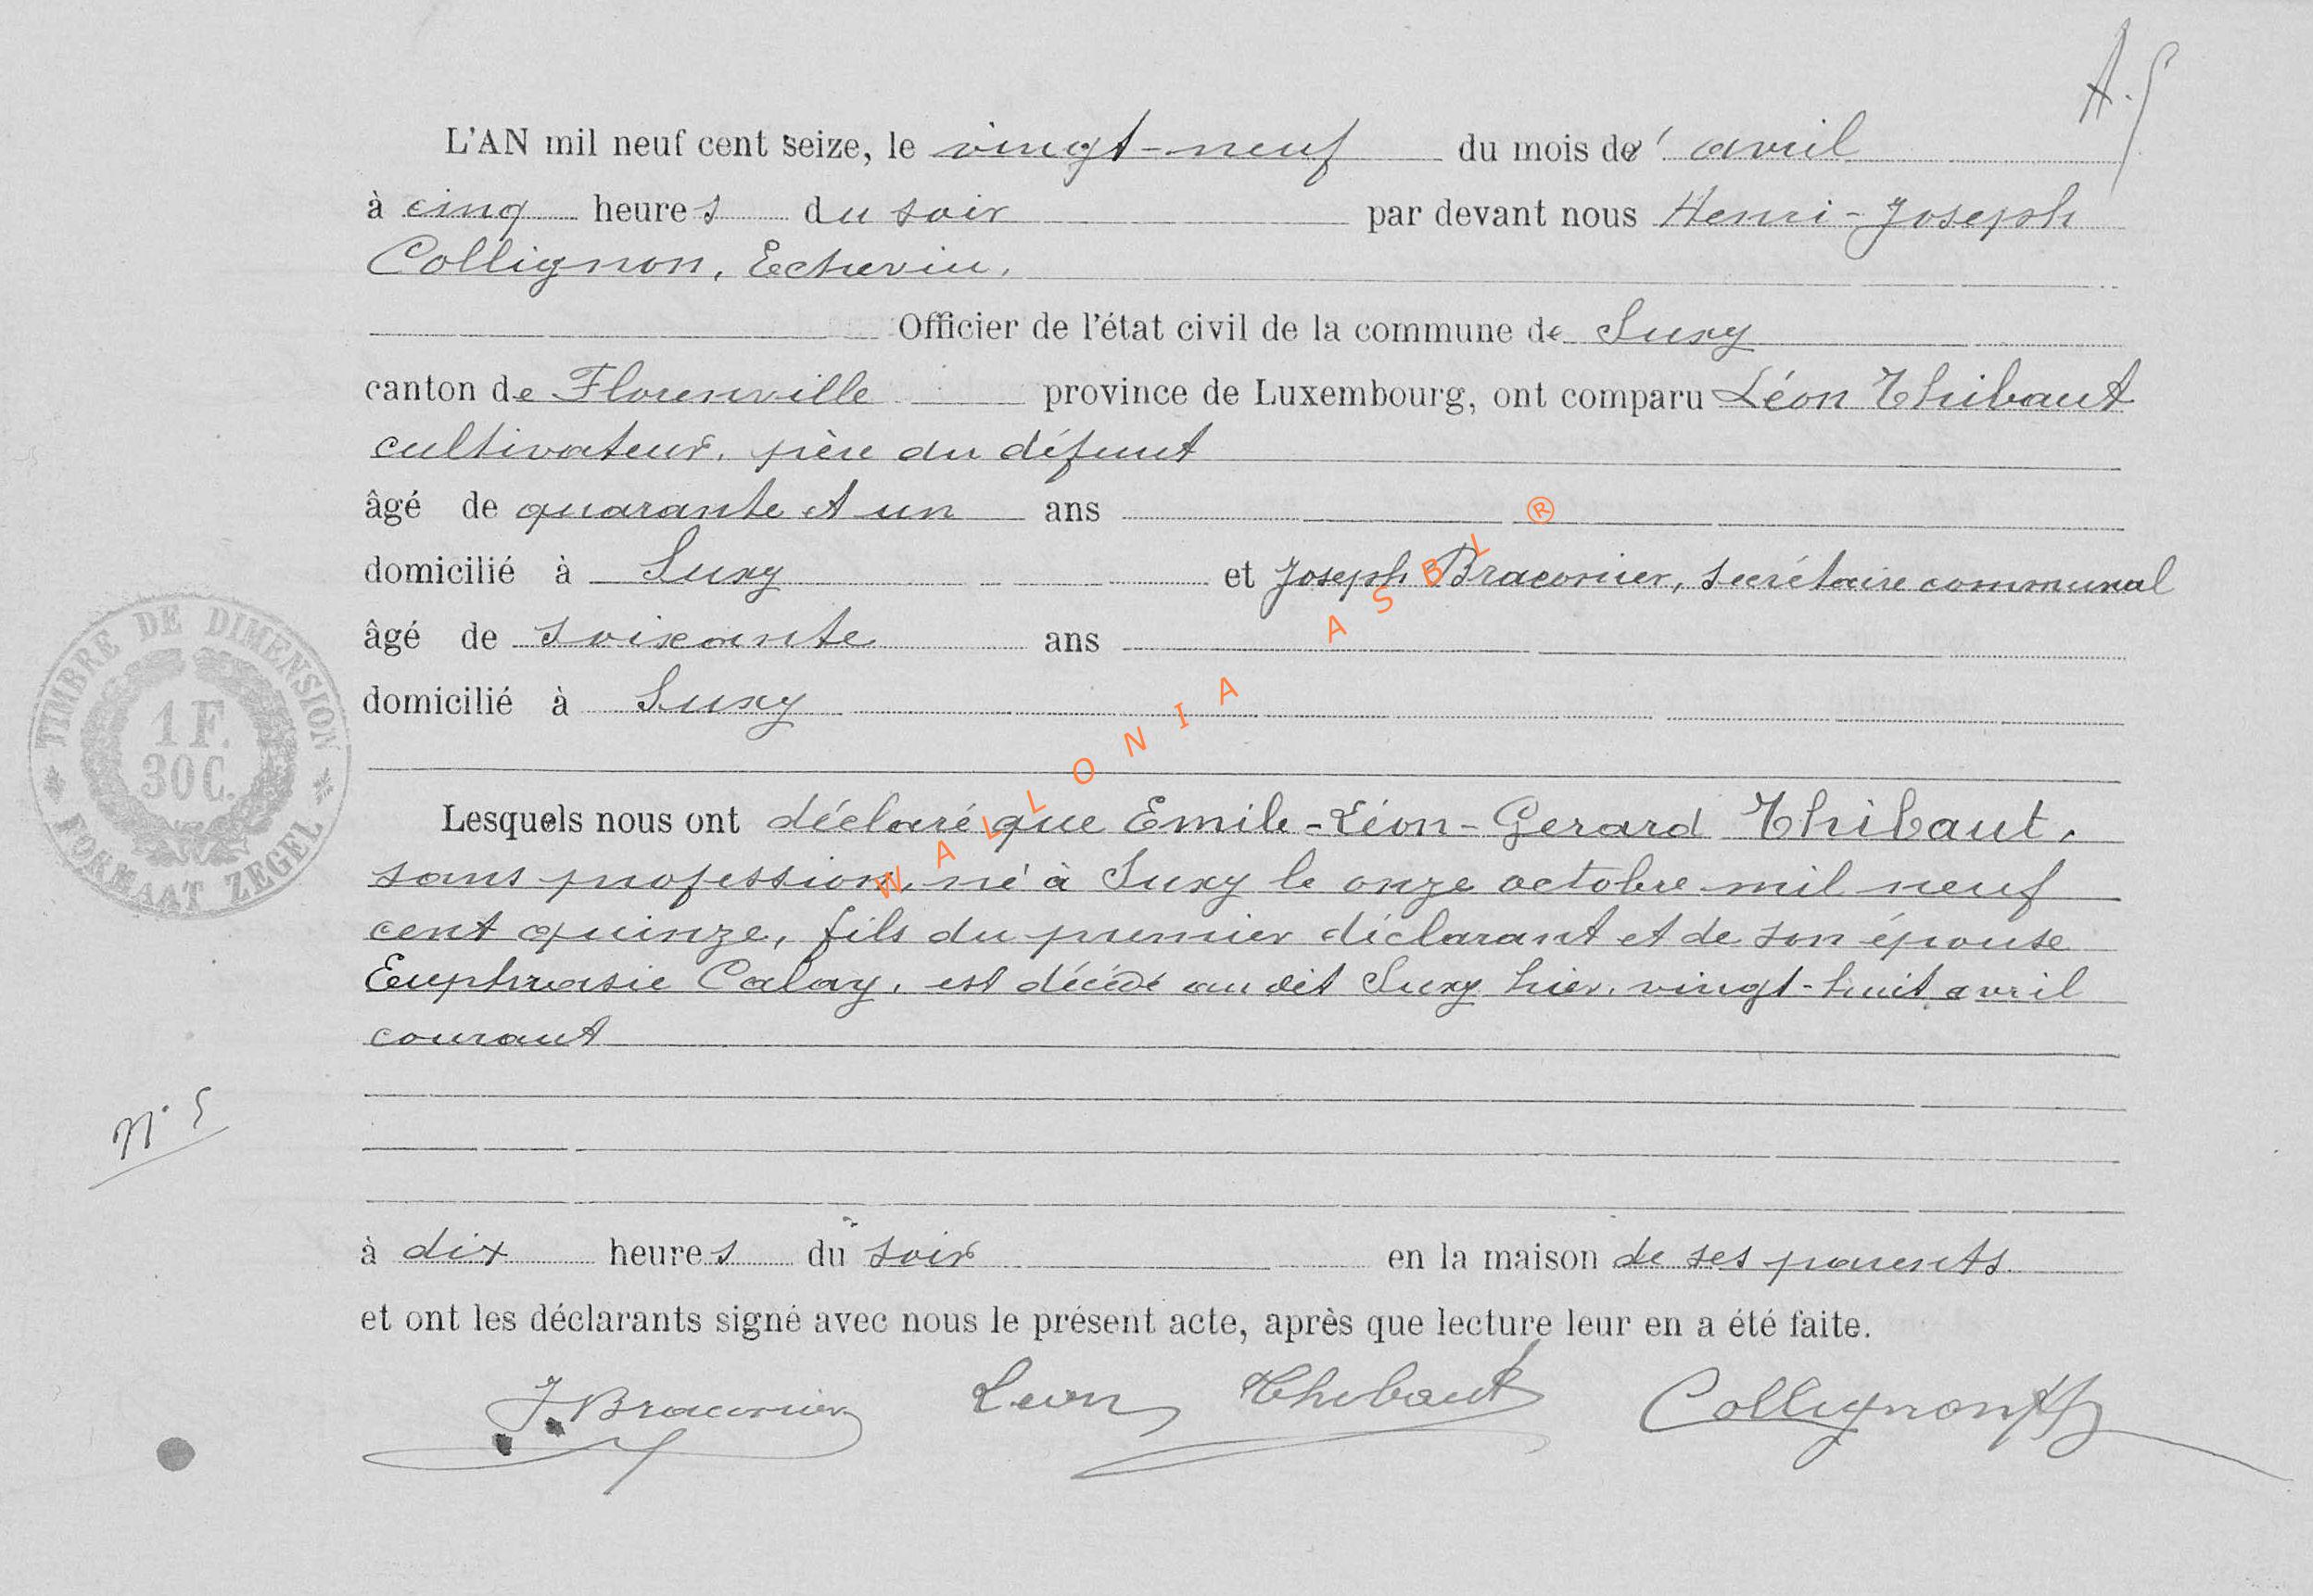 A. 5
L'AN mil neuf cent seize, le vingt-neuf du mois d'avril
à cinq heures du soir par devant nous Henri-Joseph
Collignon, Echevin,
Officier de l'état civil de la commune de Suxy
canton de Florenville province de Luxembourg, ont comparu Léon Thibaut
cultivateur, père du défunt
âgé de quarante et un ans
domicilié à Suxy et Joseph Braconier, secrétaire communal
âgé de soixante ans
domicilié à Suxy
Lesquels nous ont déclaré que Emile-Léon-Gerard Thibaut,
sans profession, né à Suxy le onze octobre mil neuf
cent quinze, fils du premier déclarant et de son épouse
Euphrasie Calay, est décédé au dit Suxy hier, vingt-huit avril
courant
N° 5
à dix heures du soir en la maison de ses parents
et ont les déclarants signé avec nous le présent acte, après que lecture leur en a été faite.
J. Braconier Leon Thibaut Collignon HJ
TIMBRE DE DIMENSION
1 F.
30 C.
FORMAAT ZEGEL
WALLONIA ASBL ®